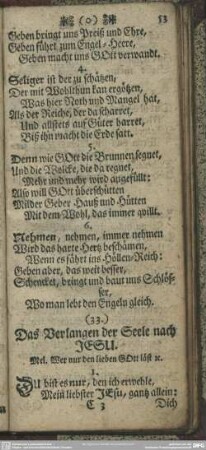 (o) 53
Geben bringt uns Preiß und Ehre,
Geben führt zum Engel-Heere,
Geben macht uns GOtt verwandt.
4.
Seliger ist der zu schätzen,
Der mit Wohlthun kan ergötzen,
Was hier Noth und Mangel hat,
Als der Reiche, der da scharret,
Und allstets auf Güter harret,
Biß ihn macht die Erde satt.
5.
Denn wie GOtt die Brunnen segnet,
Und die Wolcke, die da regnet,
Mehr und mehr wird angefüllt:
Also will GOtt überschütten
Milder Geber Hauß und Hütten
Mit dem Wohl, das immer quillt.
6.
Nehmen, nehmen, immer nehmen
Wird das harte Hertz beschämen,
Wenn es fährt ins Höllen-Reich:
Geben aber, das weit besser,
Schencket, bringt und baut uns Schlös-
ser,
Wo man lebt den Engeln gleich.
(33.)
Das Verlangen der Seele nach
JESU.
Mel. Wer nur den lieben GOtt läst ꝛc.
1.
DU bist es nur, den ich erwehle,
Mein liebster JEsu, gantz allein:
C 3 Dich